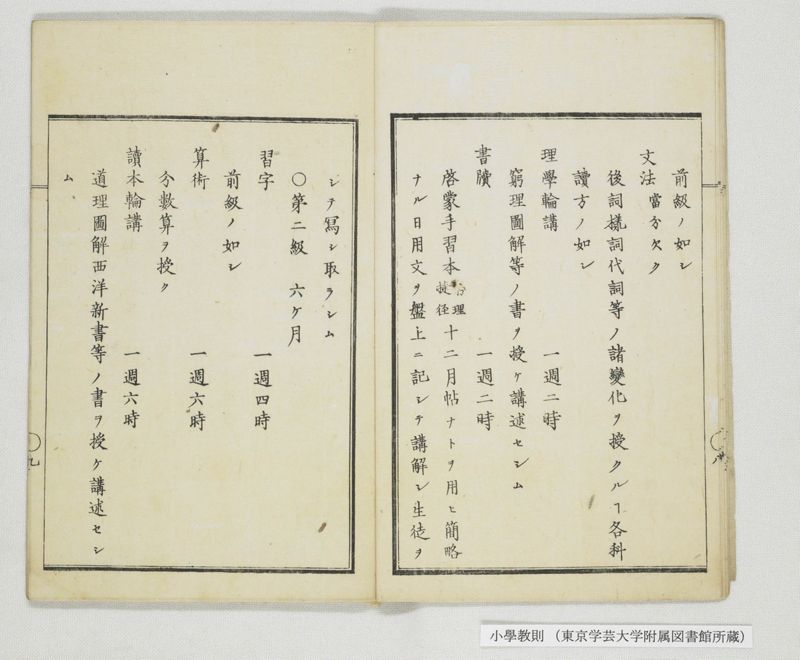 前級ノ如シ
文法 當分欠ク
後詞樣詞代詞等ノ諸變化ヲ授クルヿ各科
讀方ノ如シ
理學輪講 一週二時
窮理圖解等ノ書ヲ授ケ講述セシム
書牘 一週二時
啓蒙手習本窮理捷径十二月帖ナトヲ用ヒ簡略
ナル日用文ヲ盤上ニ記シテ講解シ生徒ヲ
シテ寫シ取ラシム
○第二級 六ケ月
習字 一週四時
前級ノ如シ
算術 一週六時
分數算ヲ授ク
讀本輪講 一週六時
道理圖解西洋新書等ノ書ヲ授ケ講述セシ
ム
九
小學教則 (東京学芸大学附属図書館所蔵)